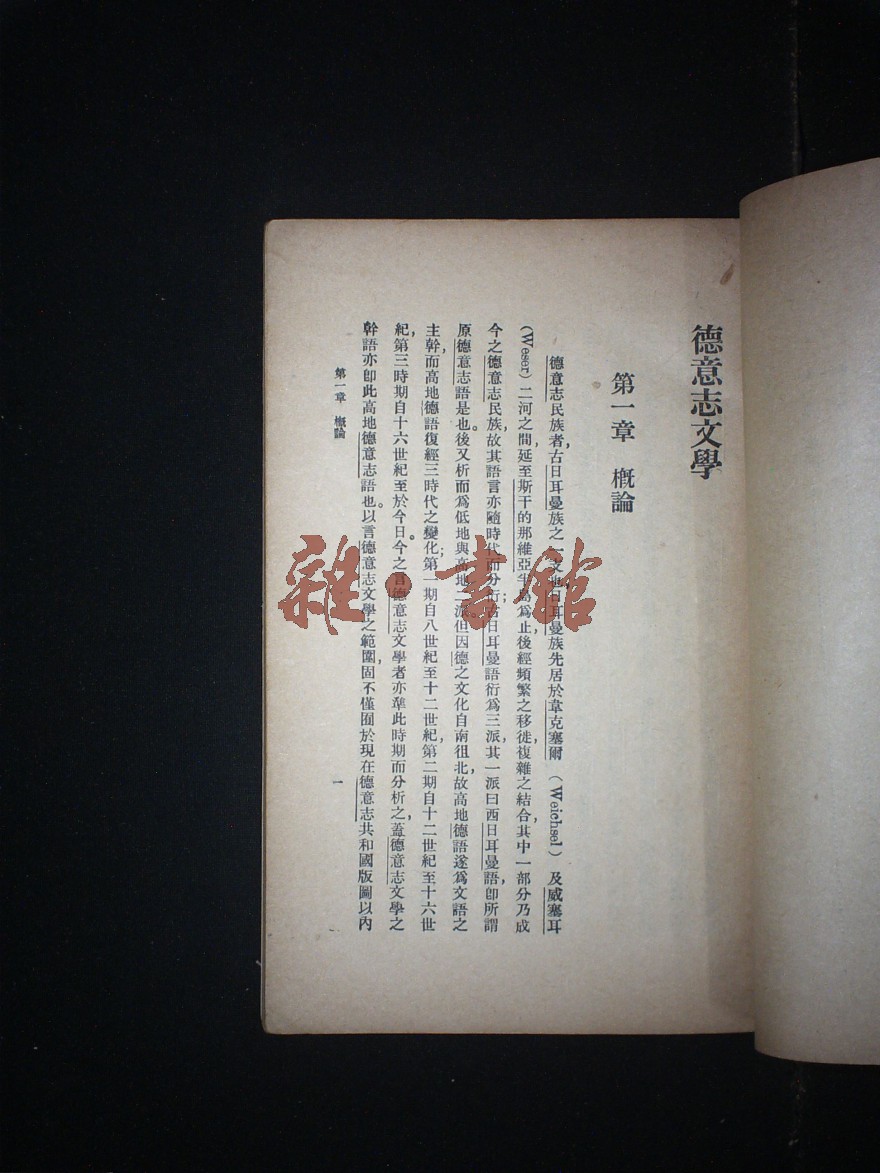 德意志文學
第一章 概論
德意志民族者，古日耳曼族之一支也。日耳曼族先居於韋克塞爾（Weichsel）及威塞耳
（Weser）二河之間，延至斯干的那維亞半島爲止。後經頻繁之移徙，複雜之結合，其中一部分乃成
今之德意志民族，故其語言亦隨時代而分衍；古日耳曼語衍爲三派，其一派曰西日耳曼語，卽所謂
原德意志語是也。後又析而爲低地與高地二派。但因德之文化自南徂北，故高地德語遂爲文語之
主幹，而高地德語復經三時代之變化；第一期自八世紀至十二世紀，第二期自十二世紀至十六世
紀，第三時期自十六世紀至於今日。今之言德意志文學者亦準此時期而分析之，蓋德意志文學之
幹語亦卽此高地德意志語也。以言德意志文學之範圍，固不僅囿於現在德意志共和國版圖以內
第一章 概論
一
雜·書館